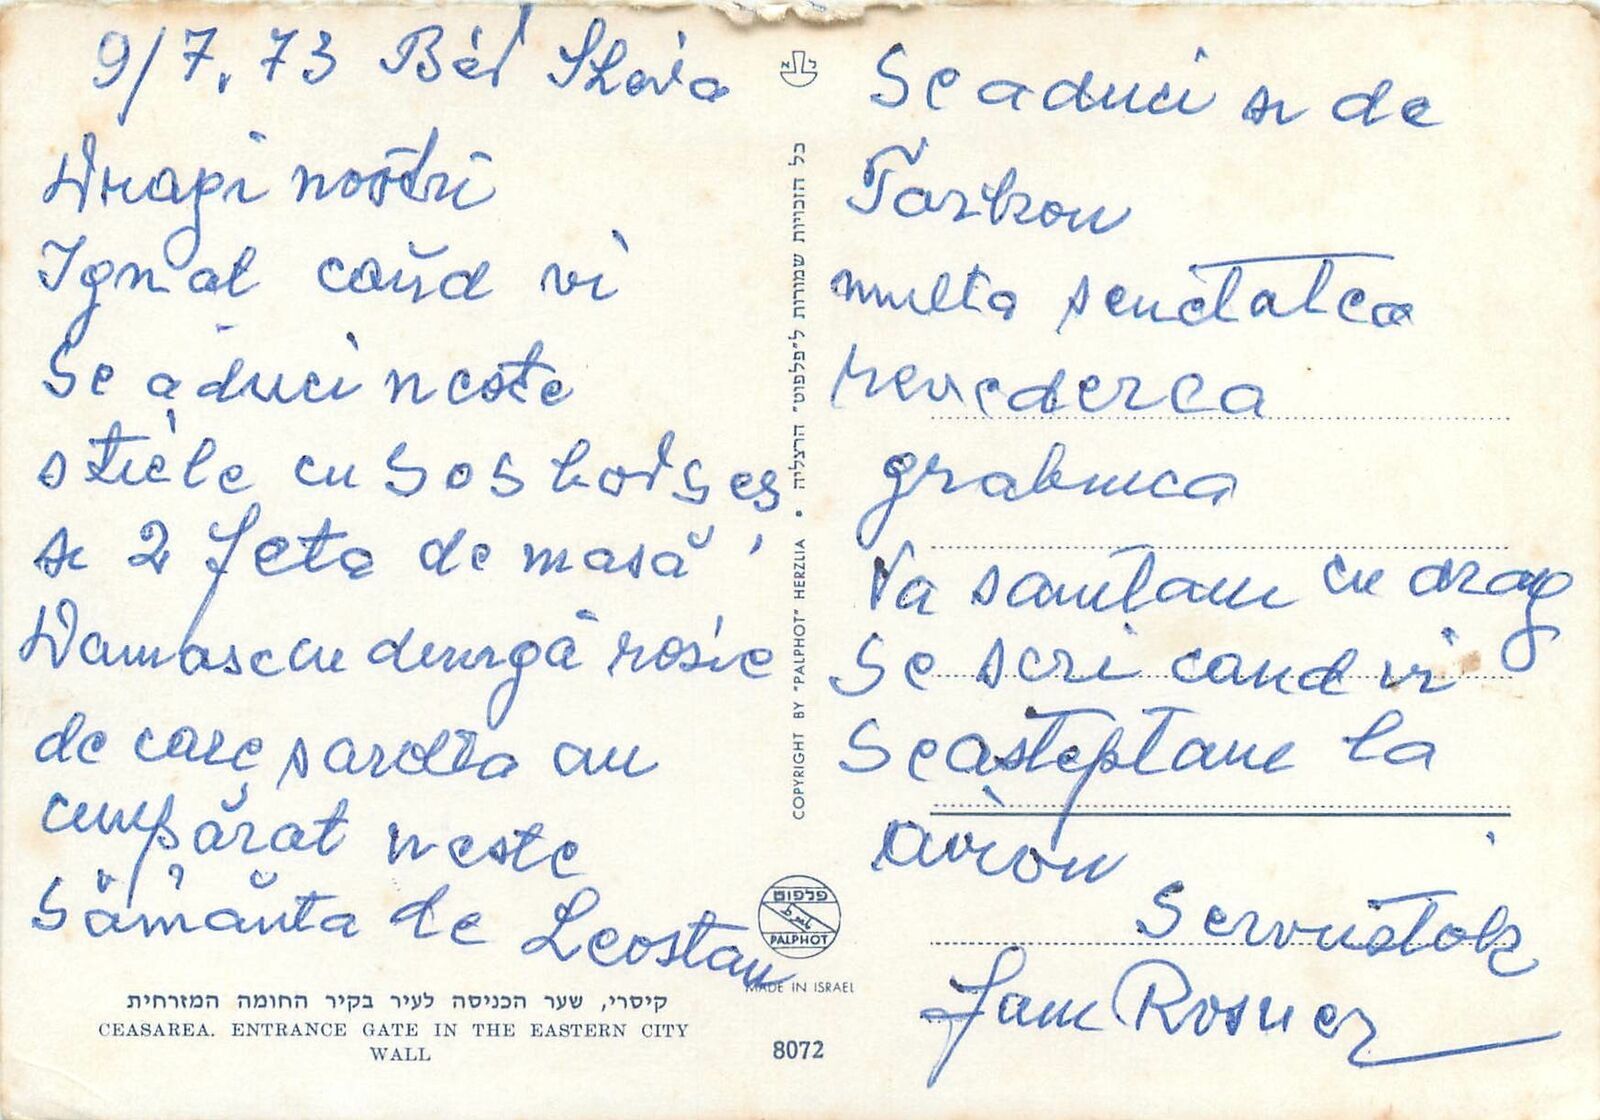 9/7.73 Bét Shova
Dragi nostri
Ignat cand vi
Se aduci neste
sticle cu
si 2 feta de masă
Damasc cu dungă rosie
de care sarotta au
cumpărat neste
Sămănta de Leostan
קיסרי, שער הכניסה לעיר בקיר החומה המזרחית
CEASAREA. ENTRANCE GATE IN THE EASTERN CITY
WALL
כל הזכויות שמורות ל״פלפוט״ הרצליה •
COPYRIGHT BY "PALPHOT" HERZLIA
פלפוט
PALPHOT
MADE IN ISRAEL
8072
Se aduci si de
Tarkon
multa senatatea
revederea
grabnica
Va sarutam cu drag
Se scri cand vi
Se asteptam la
avion
Servustok
Fam Rosner